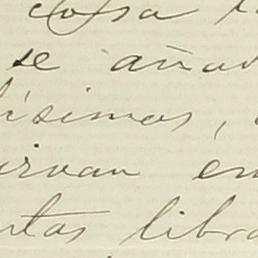 cosa
se añad
ísimos,
irvan en
ntas libra